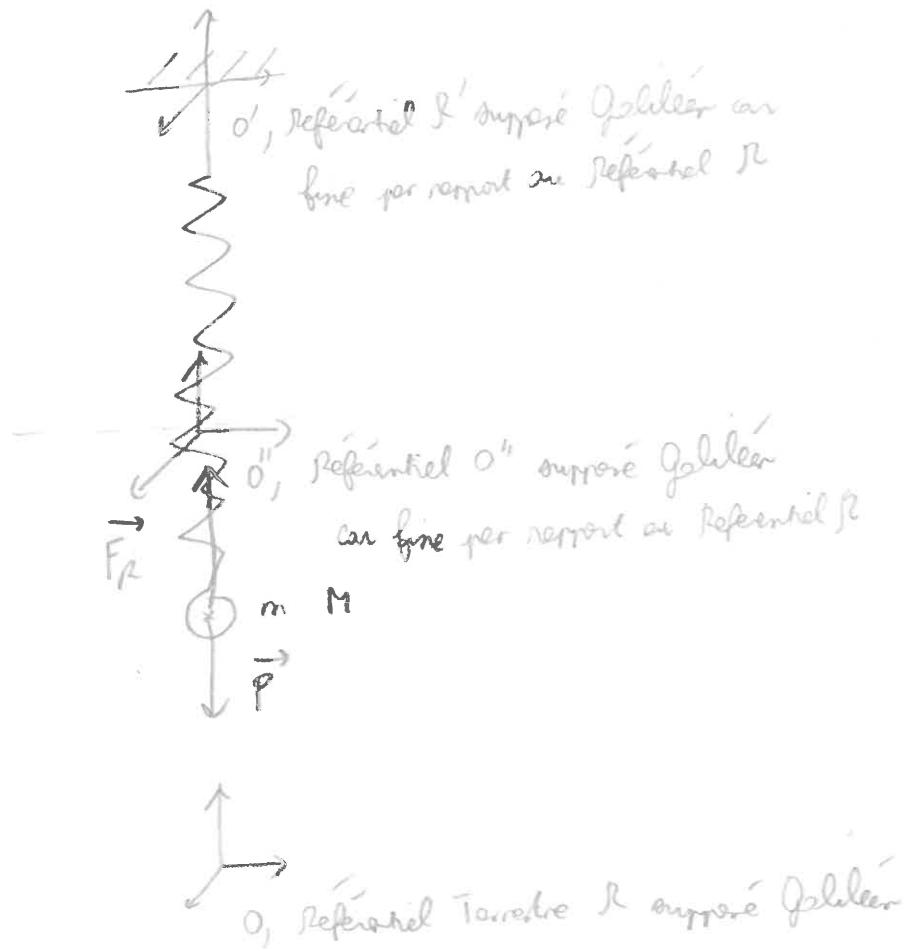 O', Référentiel R' supposé Galiléen car
fixe par rapport au Référentiel R
O'', Référentiel O'' supposé Galiléen
car fixe par rapport au Referentiel R
F_R
m M
P
O, Référentiel Terrestre R supposé Galiléen